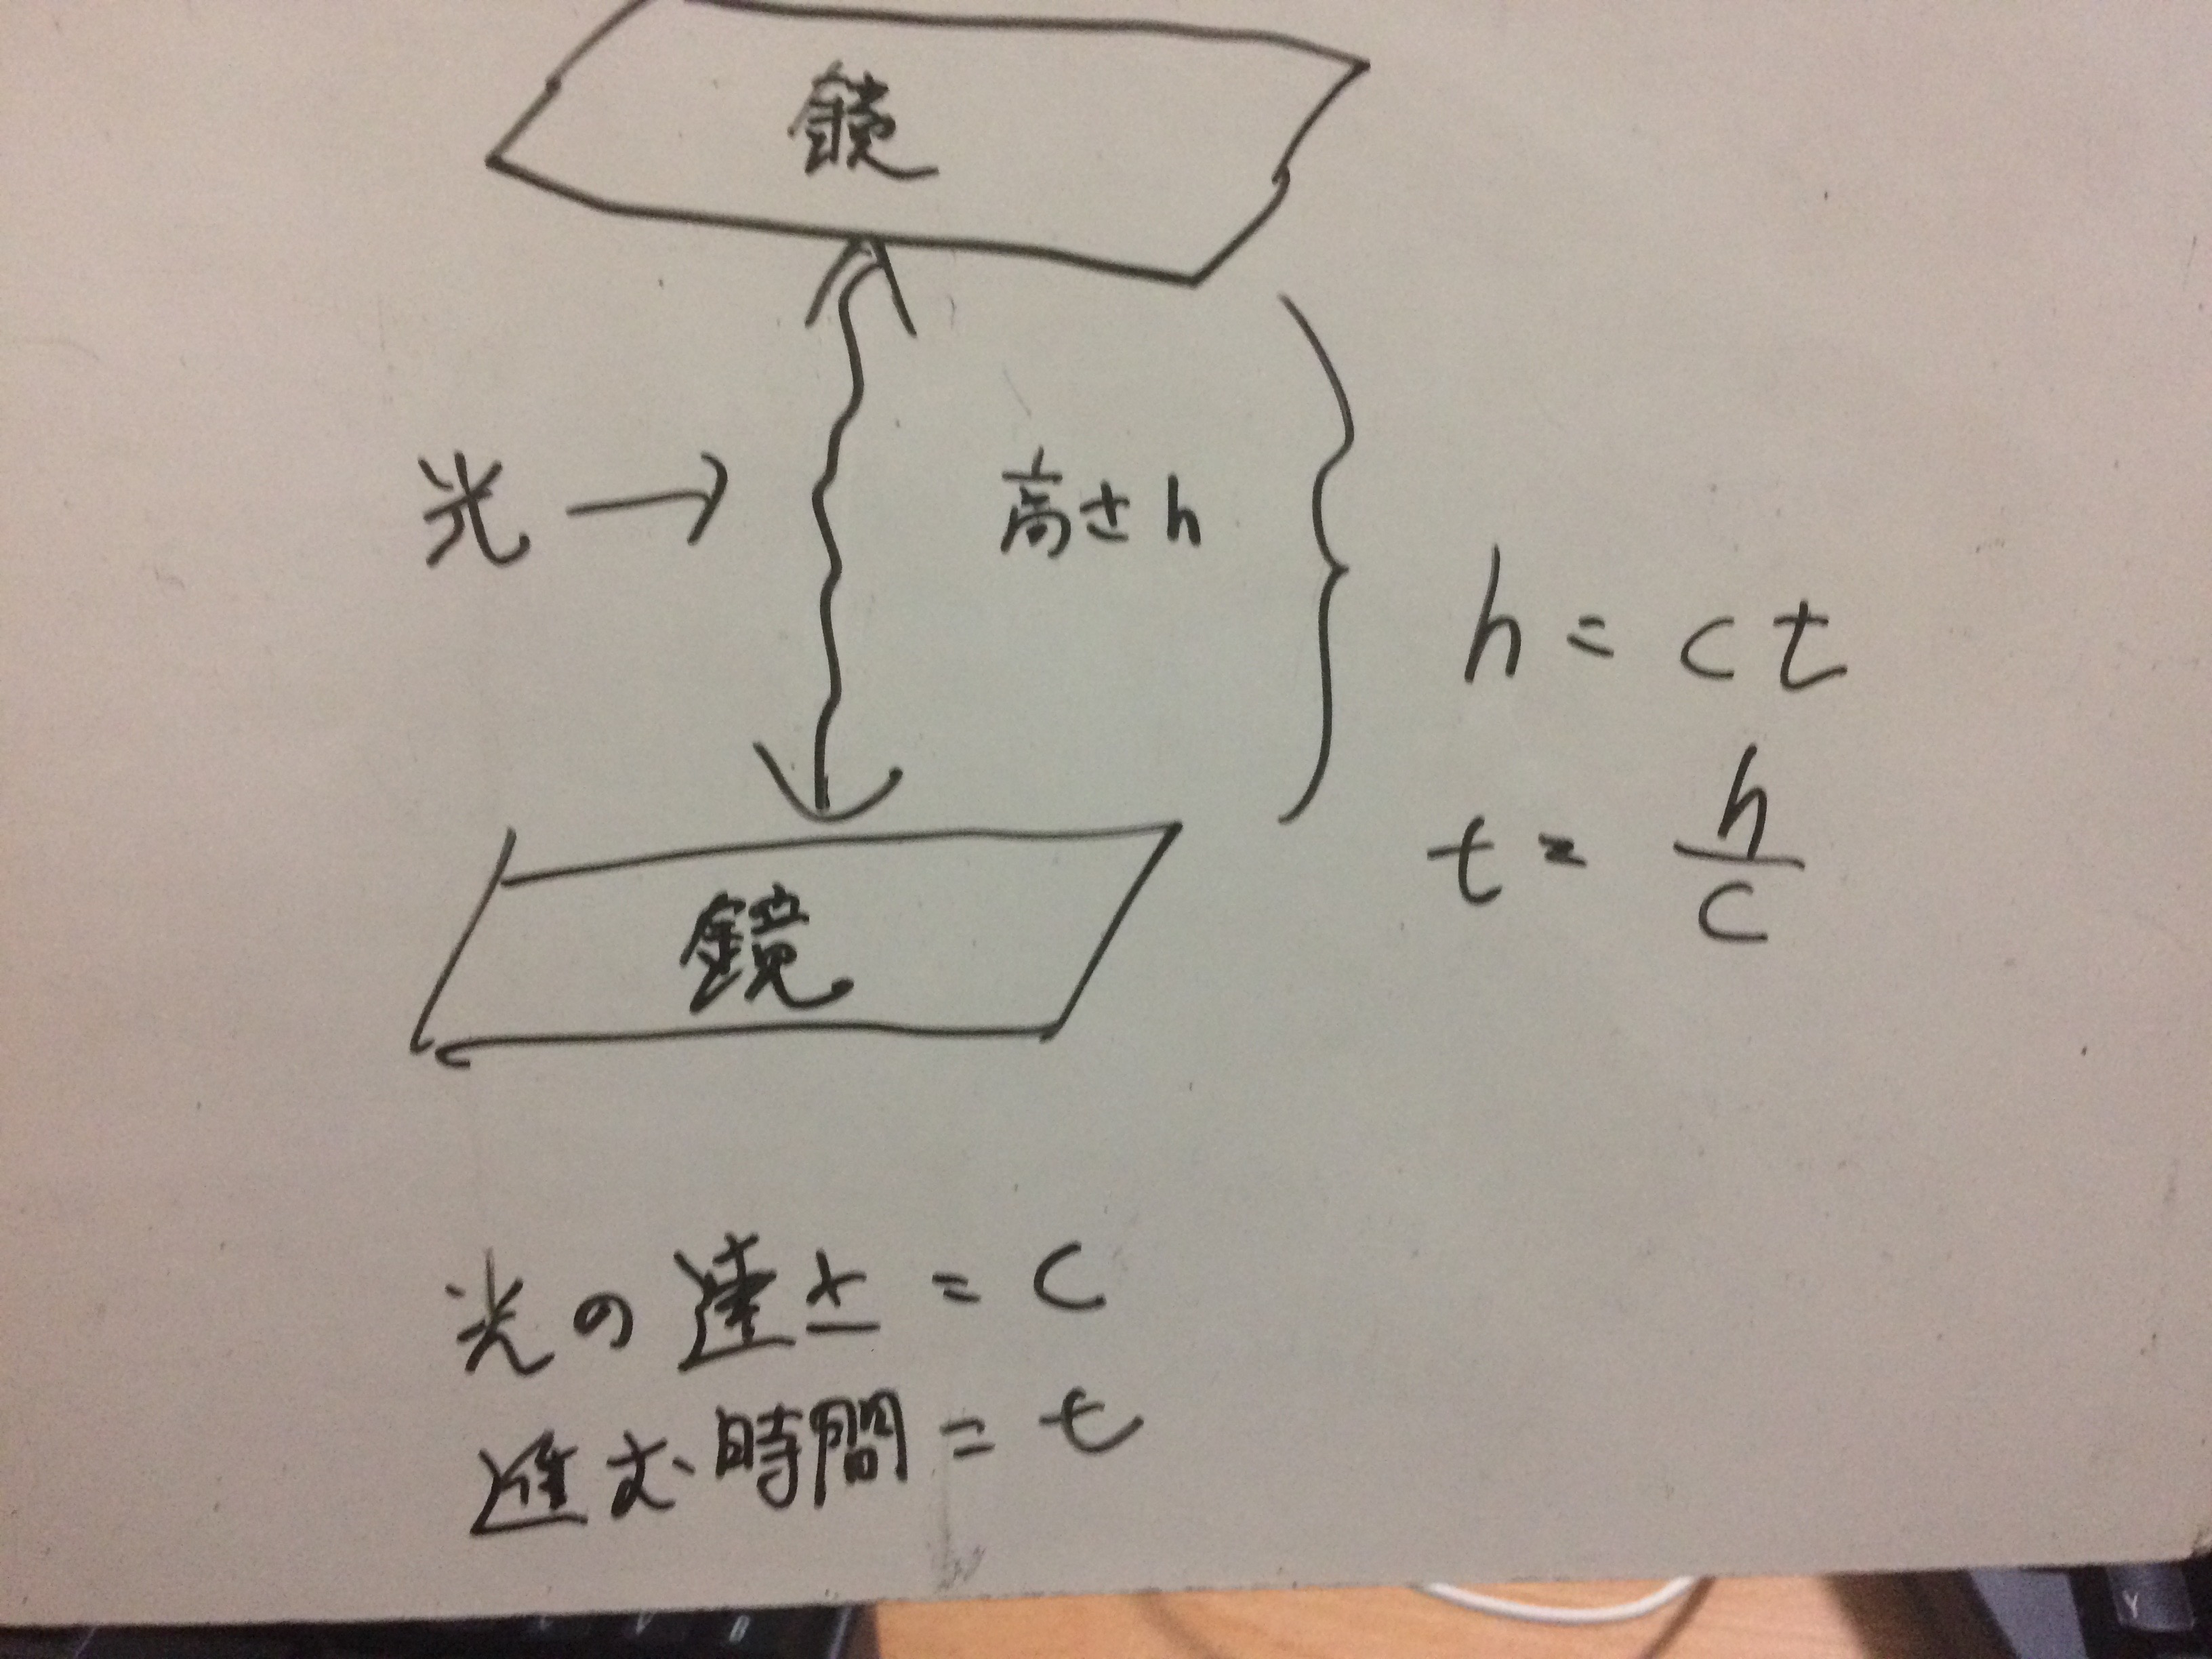 鏡
光 → 高さ h
h = ct
t = h/c
鏡
光の速さ = c
進む時間 = t
Y